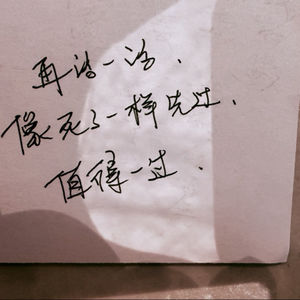 再活一
像死了一样过.
值得一过.